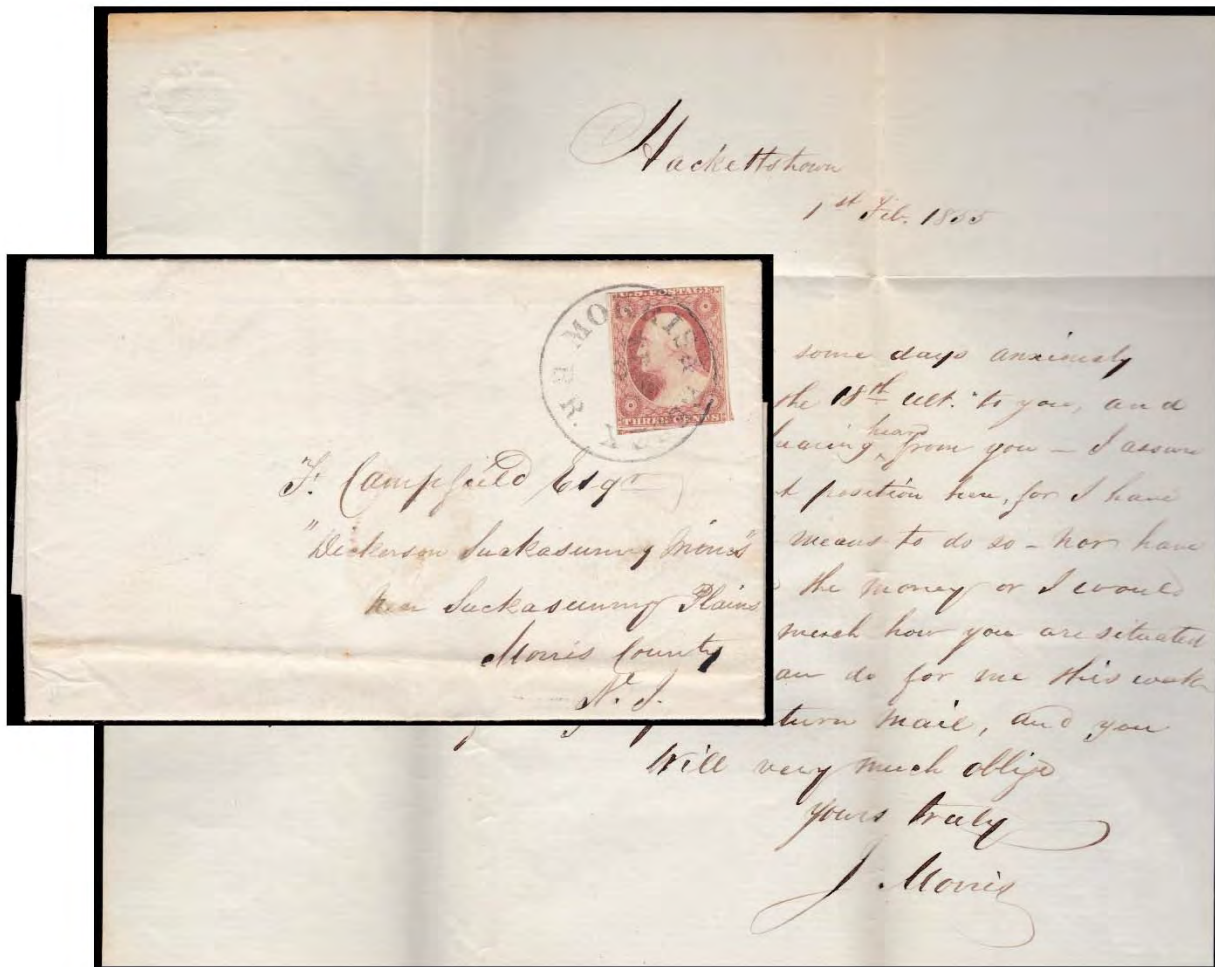 Hackettstown
1st Feb. 1855
some days anxiously
the 18th ult. to you, and
heard
hearing from you – I assure
t position here, for I have
means to do so – nor have
the money or I would
much how you are situated
an do for me this week
turn mail, and you
Will very much oblige
yours truly
J. Morris
U.S. POSTAGE
THREE CENTS
MORRIS & ESSEX R. R.
F. Campfield Esqr
"Dickerson Suckasunny Mines"
near Suckasunny Plains
Morris County
N. J.